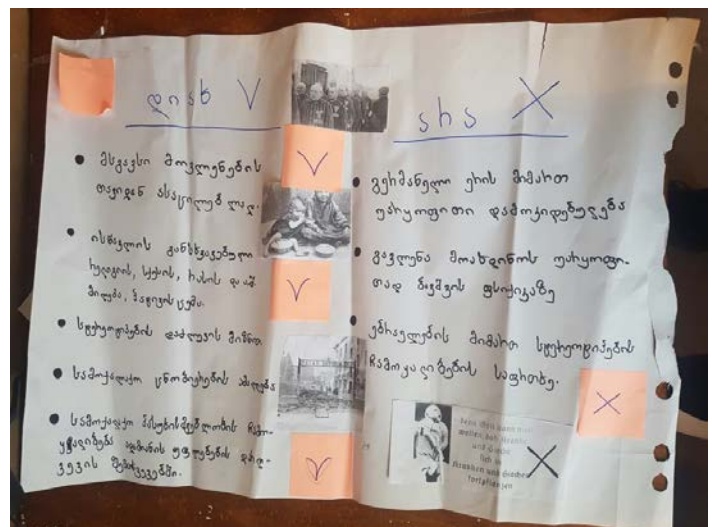 დიახ V
მსგავსი მოვლენების
თავიდან ასაცილებლად.
ისწავლის განსხვავებული
რელიგიის, სქესის, რასის და ა.შ.
მიღება, პატივისცემა.
სტერეოტიპების დაძლევის მიზნით
სამოქალაქო ცნობიერების ამაღლება
სამოქალაქო პასუხისმგებლობის ჩამო-
ყალიბება ადამიანის უფლებების დარღ-
ვევის შემთხვევებში.
არა X
გერმანელი ერის მიმართ
უარყოფითი დამოკიდებულება
გავლენა მოახდინოს უარყოფი-
თად ბავშვის ფსიქიკაზე
ებრაელების მიმართ სტერეოტიპების
ჩამოყალიბების საფრთხე.
und
Kranken und
fortpflanzen